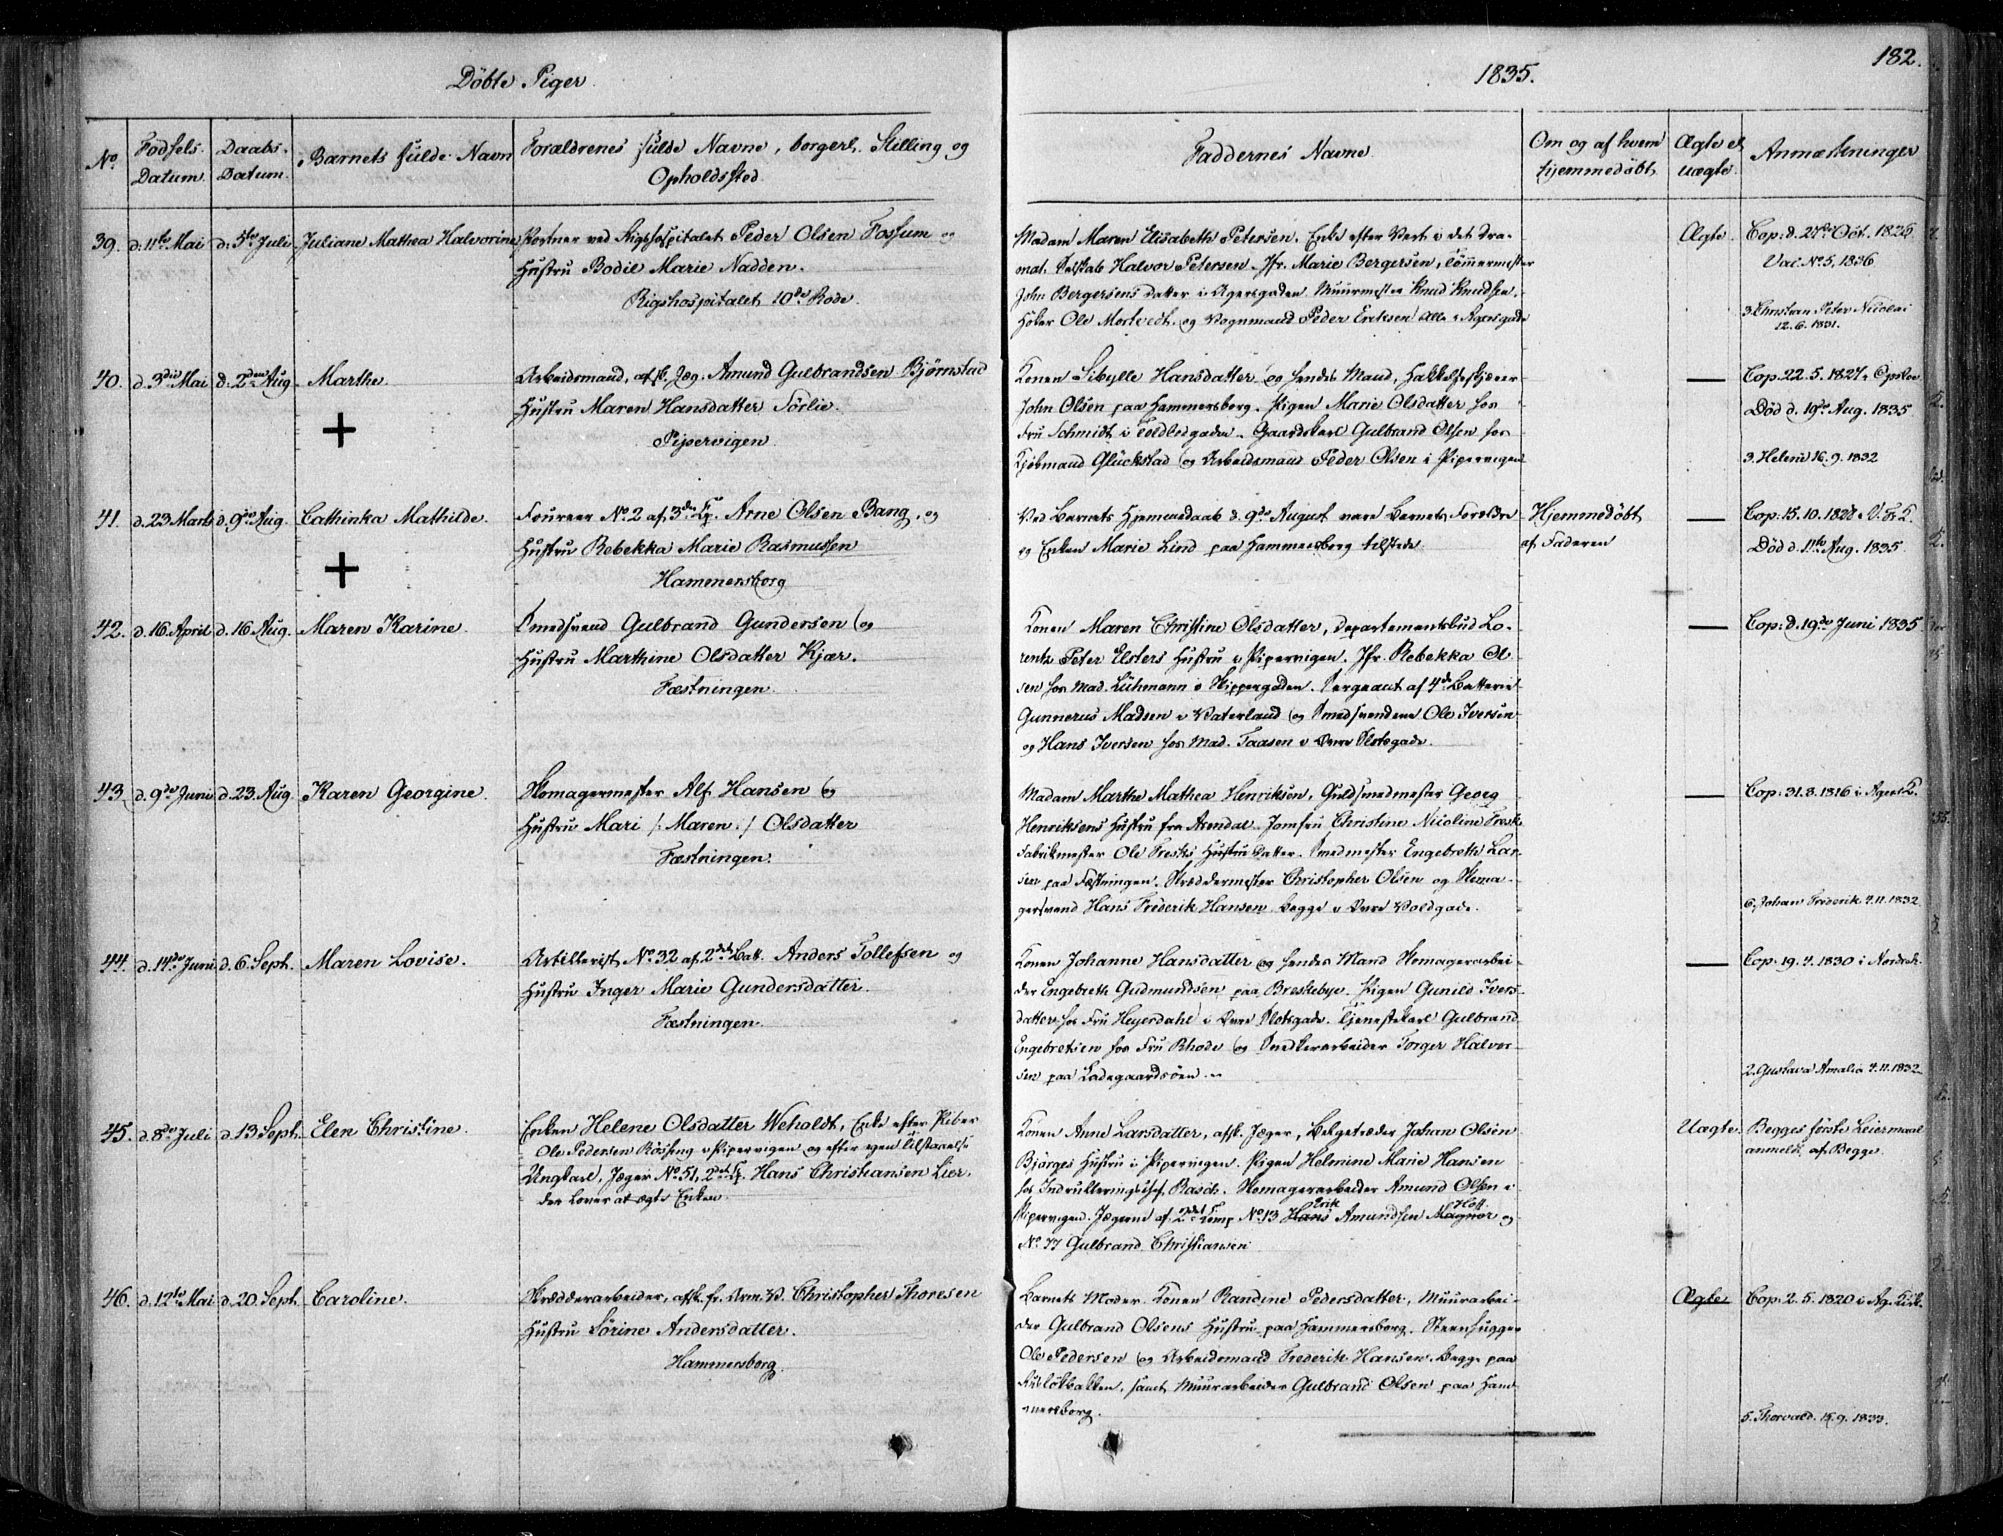 182.
Döbte Piger.
1835.
No.
Födsels Datum.
Daabs Datum.
Barnets fulde Navn
Forældrenes fulde Navne, borgerl. Stilling og Opholdssted.
Faddernes Navne.
Om og af hvem hjemmedöbt.
Ægte el. uægte.
Anmærkninger
39. d. 11te Mai d. 5te Juli Juliane Mathea Halvorine
Portner ved Rigshospitalet Peder Olsen Fossum og
Hustru Bodil Marie Nadden.
Rigshospitalet 10de Rode.
Madam Maren Elisabeth Petersen. Enke efter Vert i det Dra-
mat. Selskab Halvor Petersen. Jfr. Marie Bergersen, Tömmermester
John Bergersens Datter i Agersgaden. Muurmester Knud Knudsen,
Höker Ole Mortvedt og Vognmand Peder Eriksen Alle i Agersgade
Ægte.
Cop. d. 27de Oct. 1825
Vac. No 5, 1836
3. Christian Peter Nicolai
12. 6. 1831.
40. d. 3die Mai d. 2den Aug. Marthe
Arbeidsmand, afsk. Jæg. Amund Gulbrandsen Björnstad
Hustru Maren Hansdatter Sörlie.
Pipervigen
Konen Sibylle Hansdatter og hendes Mand, Hakkelseskjærer
John Olsen paa Hammersborg. Pigen Marie Olsdatter hos
Fru Schmidt i Toldbodgaden. Gaardskarl Gulbrand Olsen hos
Kjöbmand Glückstad og Arbeidsmand Peder Olsen i Pipervigen
Cop. 22. 5. 1827 i Opsloe
Död d. 19de Aug. 1835
3. Helene 16. 9. 1832
41. d. 23 Marts d. 9de Aug. Cathinka Mathilde.
Foureer No. 2 af 3die Cp. Arne Olsen Bang, og
Hustru Rebekka Marie Rasmussen
Hammersborg
Ved Barnets Hjemmedaab d. 9de August vare Barnets Forældre
og Enken Marie Lind paa Hammersborg tilstede.
Hjemmedöbt
af Faderen
Cop. 15. 10. 1828 i V. Fr. K.
Död d. 11te Aug. 1835.
42. d. 16. April d. 16 Aug. Maren Karine
Smedsvend Gulbrand Gundersen og
Hustru Marthine Olsdatter Kjær.
Fæstningen.
Konen Maren Christine Olsdatter, Departementsbud Lo-
rentz Peter Elsters Hustru i Pipervigen. Jfr. Rebekka Ol-
sen hos Mad. Lühmann i Skippergaden. Sergeant af 4de Batterie
Gunnerus Madsen i Vaterland og Smedsvendene Ole Iversen
og Hans Iversen hos Mad. Taasen i Övre Slotsgade.
Cop: d. 19de Juni 1835
43. d. 9de Juni d. 23. Aug. Karen Georgine.
Skomagermester Alf Hansen og
Hustru Mari /: Maren :/ Olsdatter
Fæstningen.
Madam Marthe Mathea Henriksen, Guldsmedmester Georg
Henriksens Hustru fra Arendal. Jomfru Christine Nicoline Fresk
Fabrikmester Ole Fresks Hustrus Datter. Smedmester Engebreth Lar-
sen paa Fæstningen. Skræddermester Christopher Olsen og Skoma-
gersvend Hans Frederik Hansen begge i Övre Voldgade.
Cop: 31. 3. 1816 i Agers K.
6. Johan Frederik 4. 11. 1832
44. d. 14de Juni d. 6. Sept. Maren Lovise.
Artillerist No. 32 af 2det Batt. Anders Tollefsen og
Hustru Inger Marie Gundersdatter.
Fæstningen.
Konen Johanne Hansdatter og hendes Mand Skomagerarbei-
der Engebreth Gudmundsen paa Breskebye. Pigen Gunild Ivers-
datter hos Fru Heyerdahl i Övre Slotsgade. Tjenestekarl Gulbrand
Engebretsen hos Fru Rhode og Snedkerarbeider Torger Halvor-
sen paa Ladegaardsöen.
Cop. 19. 4. 1830 i
2. Gustava Amalia 4. 11. 1832
45. d. 8de Juli d. 13 Sept. Elen Christine.
Enken Helene Olsdatter Weholdt, Enke efter
Ole Pedersen i Pipervigen og efter egen Tilstaaelse
Ungkarl, Jæger No. 51, 2det Cp. Hans Christiansen Lier.
der lover at ægte Enken.
Konen Anne Larsdatter, afsk. Jæger, Belgetræder Johan Olsen
Björges Hustru i Pipervigen. Pigen Helmine Marie Hansen
hos Indrulleringschef Rasch. Skomagerarbeider Amund Olsen i
Pipervigen. Jægerne af 2det Comp No. 13 Hans Erik Amundsen Magnor Hoff og
No. 77 Gulbrand Christiansen
Uægte.
Begges förste Leiermaal
anmeldt af Begge.
46. d. 12te Mai d. 20. Sept. Caroline.
Skrædderarbeider, afsk. fr. Arm. V. Christopher Thoresen
Hustru Sörine Andersdatter.
Hammersborg.
Barnets Moder. Konen Randine Pedersdatter, Muurarbei-
der Gulbrand Olsens Hustru paa Hammersborg. Steenhugger
Ole Pedersen og Arbeidsmand Frederik Hansen begge paa
samt Muurarbeider Gulbrand Olsen paa Ham-
mersborg.
Ægte
Cop: 2. 5. 1820 i Ag. Kirk.
5. Thorvald. 15. 9. 1833.